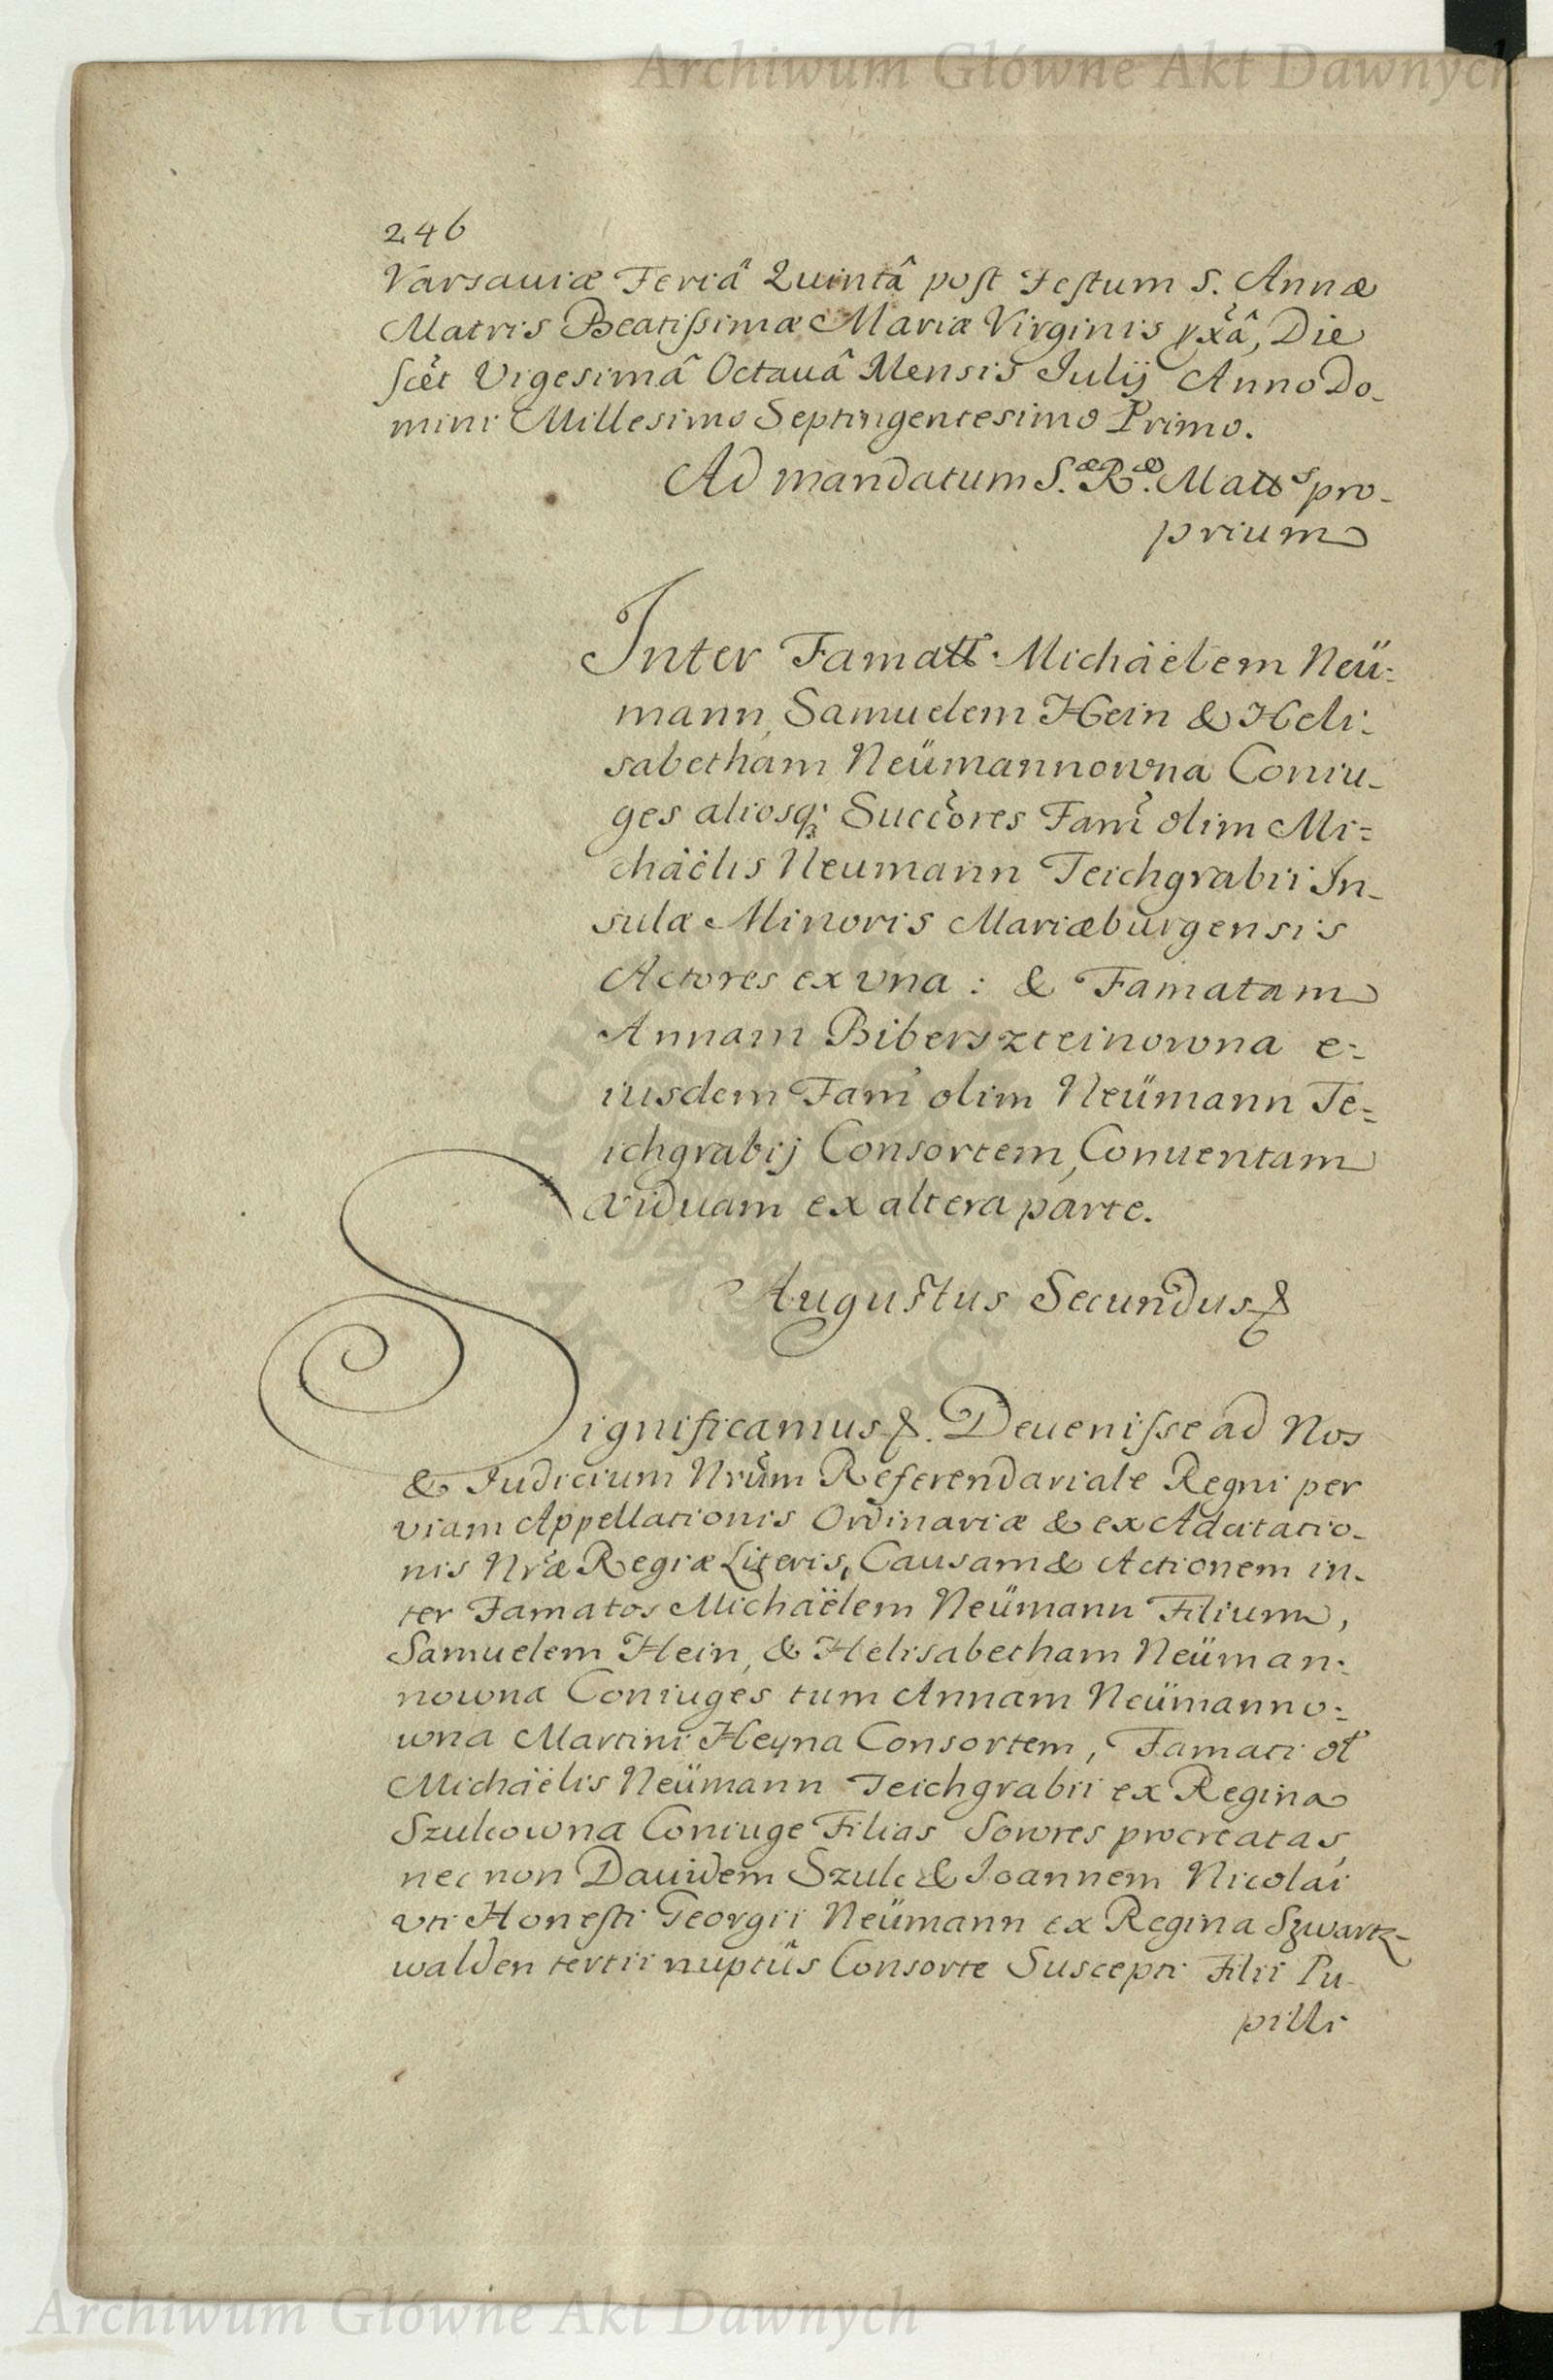 Archiwum Główne Akt Dawnych
246
Varsauiæ Feriâ Quintâ post Festum S. Annæ
Matris Beatissimæ Mariæ Virginis pxâ, Die
scèt Vigesimâ Octauâ Mensis Iulij Anno Do-
mini Millesimo Septingentesimo Primo.
Ad mandatum S.æ R.æ Matts pro-
prium
Inter Famatt. Michäelem Neü:
mann, Samuelem Hein & Heli:
sabetham Neümannowna Coniu-
ges aliosq; Succores Fami olim Mi=
chäelis Neumann Teichgrabii In-
sulæ Minoris Mariæburgensis
Actores ex vna : & Famatam
Annam Biberszteinowna e:
iusdem Fam olim Neümann Te=
ichgrabij Consortem, Conuentam
viduam ex altera parte.
Augustus Secundus &
Significamus &. Deuenisse ad Nos
& Iudicium Nrum Referendariale Regni per
viam Appellationis Ordinariæ & ex Adcitatio-
nis Nræ Regiæ Literis, Causam & Actionem in-
ter Famatos Michäelem Neümann Filium,
Samuelem Hein, & Helisabetham Neüman:
nowna Coniuges tum Annam Neümanno:
wna Martini Heyna Consortem, Famati ol
Michäelis Neümann Teichgrabii ex Regina
Szulcowna Coniuge Filias Sorores procreatas,
nec non Dauidem Szulc & Ioannem Nicolai
vti Honesti Georgii Neümann ex Regina Szwartz-
walden tertii nuptûs Consorte Suscepti Filii Pu-
pilli
Archiwum Główne Akt Dawnych